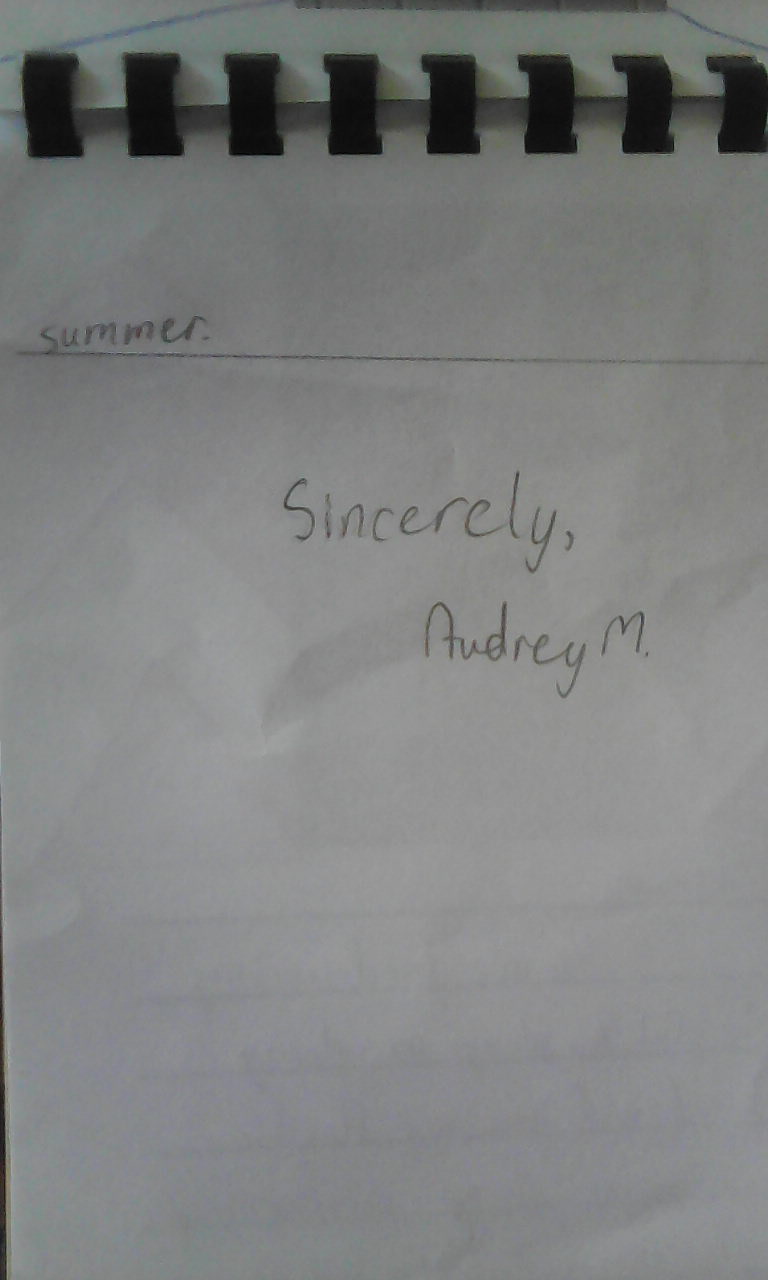 summer.
Sincerely,
Audrey M.